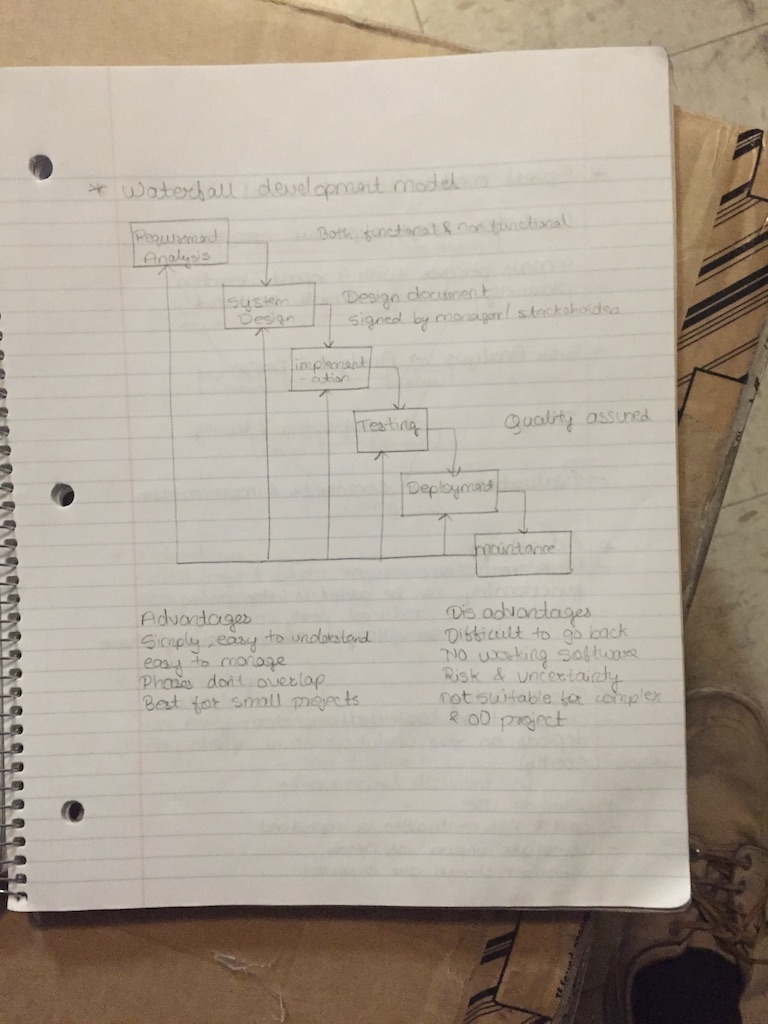 * Waterfall development model
Requirement
Analysis
Both functional & non functional
System
Design
Design document
signed by manager/ stackeholder
implement
-ation
Testing
Quality assured
Deployment
maintance
Advantages
Simply easy to understand
easy to manage
Phases don't overlap
Best for small projects
Dis advantages
Difficult to go back
No working software
Risk & uncertainty
not suitable for complex
& OO project